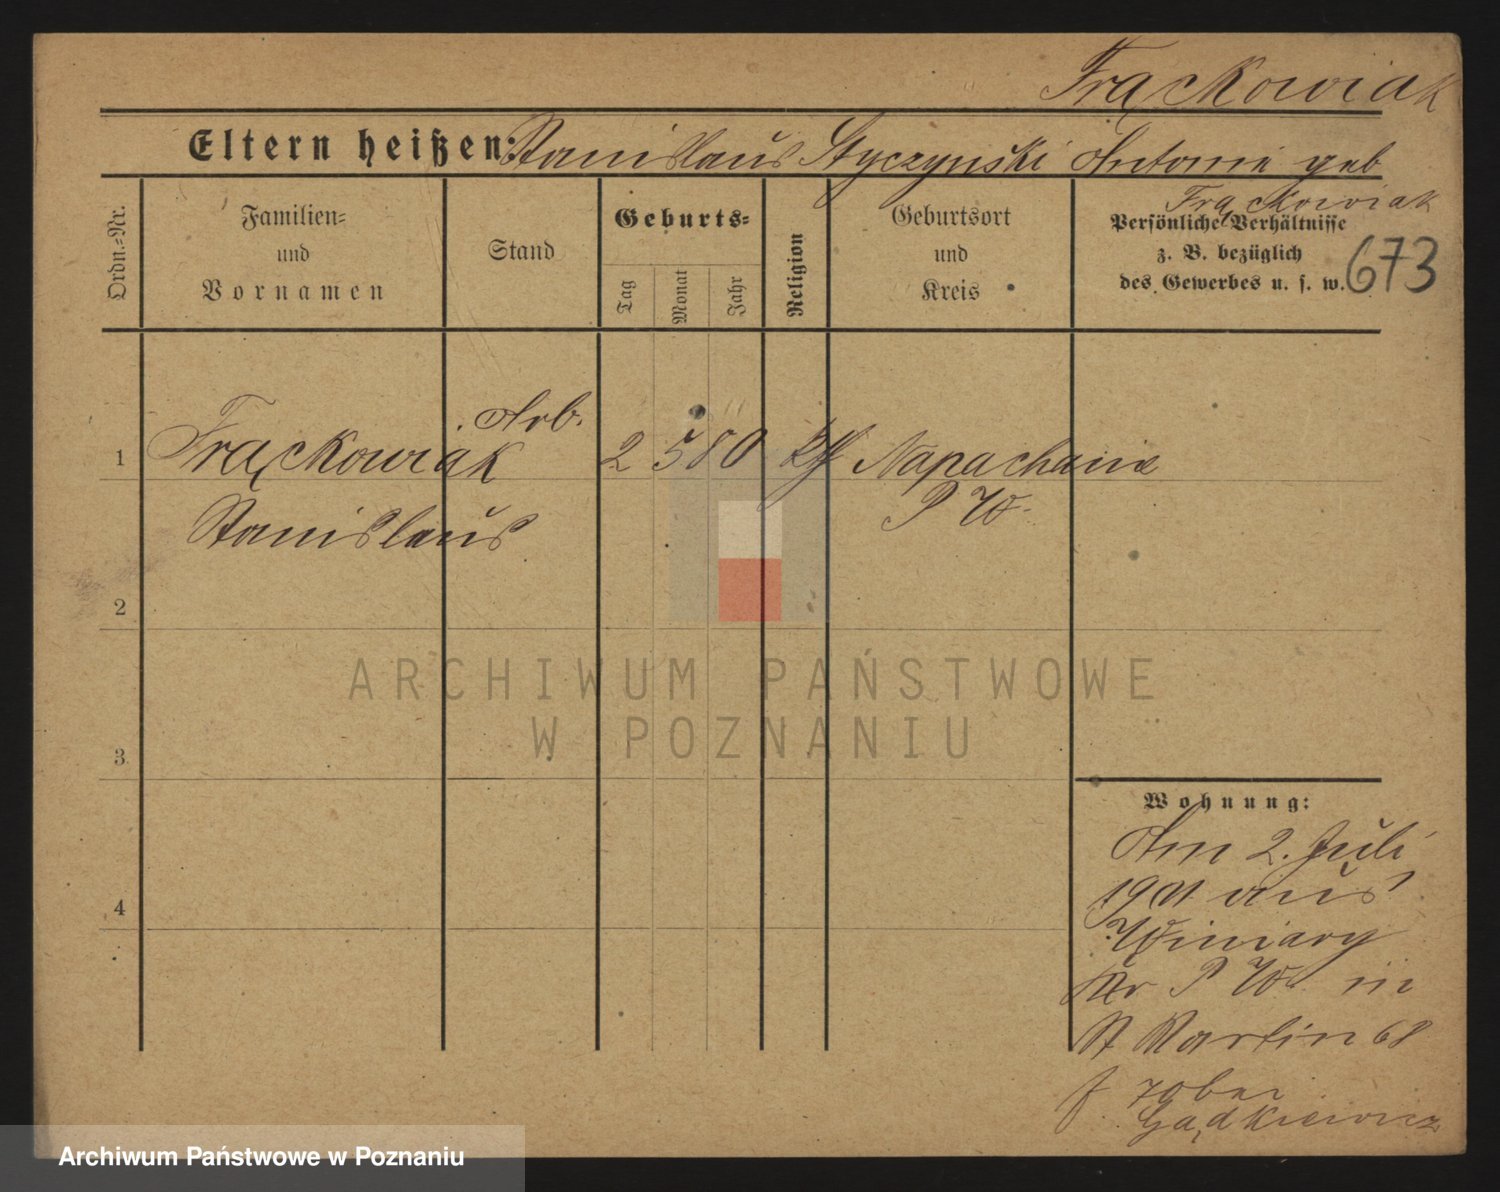 Frąckowiak
Eltern heißen: Stanislaus Styczynski Antonie geb
Frąckowiak
Ordn.-Nr.
Familien-
und
Vornamen
Stand
Geburts-
Tag
Monat
Jahr
Religion
Geburtsort
und
Kreis
Persönliche Verhältnisse
z. B. bezüglich
des Gewerbes u. s. w.
673
Arb.
1 Frąckowiak 2 5 80 kth Napachanie
Stanislaus P W.
2
3
4
Wohnung:
Am 2. Juli
1901 aus
Winiary
Kr P W. in
St Martin 68
bei
Gądkiewicz
ARCHIWUM PAŃSTWOWE
W POZNANIU
Archiwum Państwowe w Poznaniu